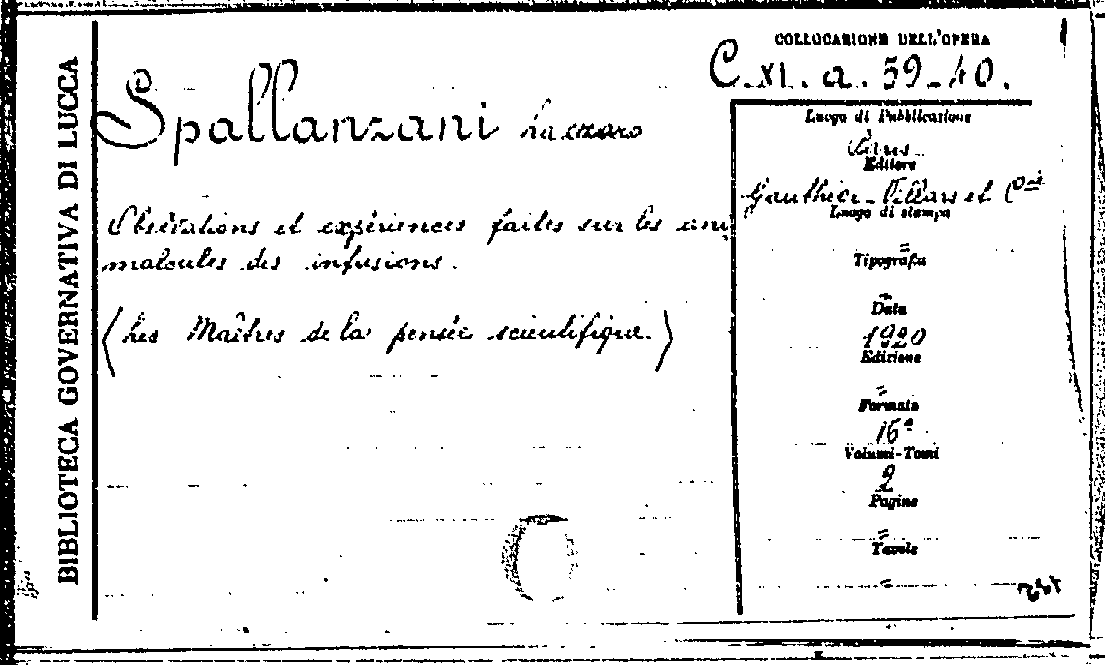 BIBLIOTECA GOVERNATIVA DI LUCCA
COLLOCAZIONE DELL'OPERA
C. XI. a. 39-40.
Spallanzani Lazzaro
Observations et expériences faites sur les ani
malcules des infusions.
(Les Maîtres de la pensée scientifique.)
Luogo di Pubblicazione
Paris
Editore
Gauthier-Villars et Cie
Luogo di stampa
=
Tipografia
=
Data
1920
Edizione
=
Formato
16°
Volumi-Tomi
2
Pagine
=
Tavole
=